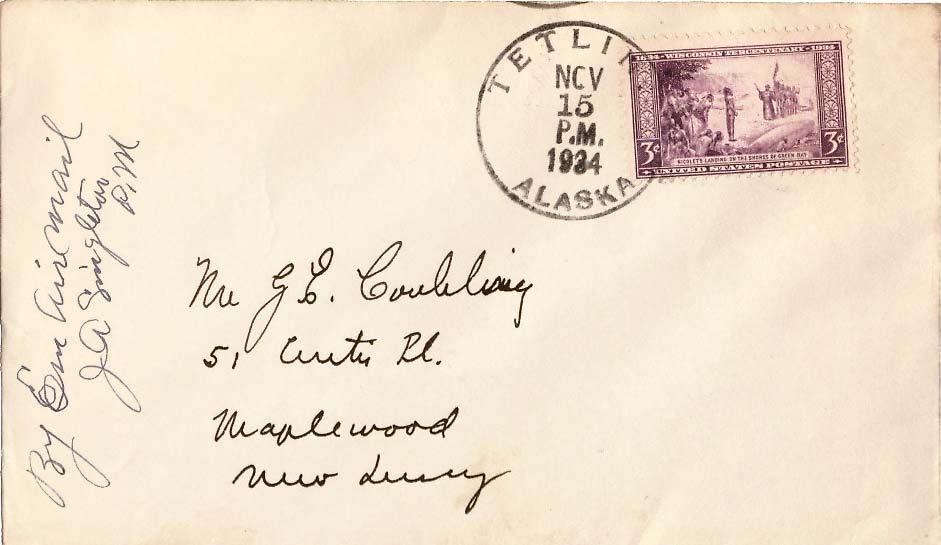 TETLIN
NOV
15
P.M.
1934
ALASKA
1634-WISCONSIN TERCENTENARY-1934
3¢ 3¢
NICOLET'S LANDING ON THE SHORES OF GREEN BAY
UNITED STATES POSTAGE
By Em Air mail
J A Singleton
P.M
Mr G E. Conkling
51 Curtis Pl.
Maplewood
New Jersey